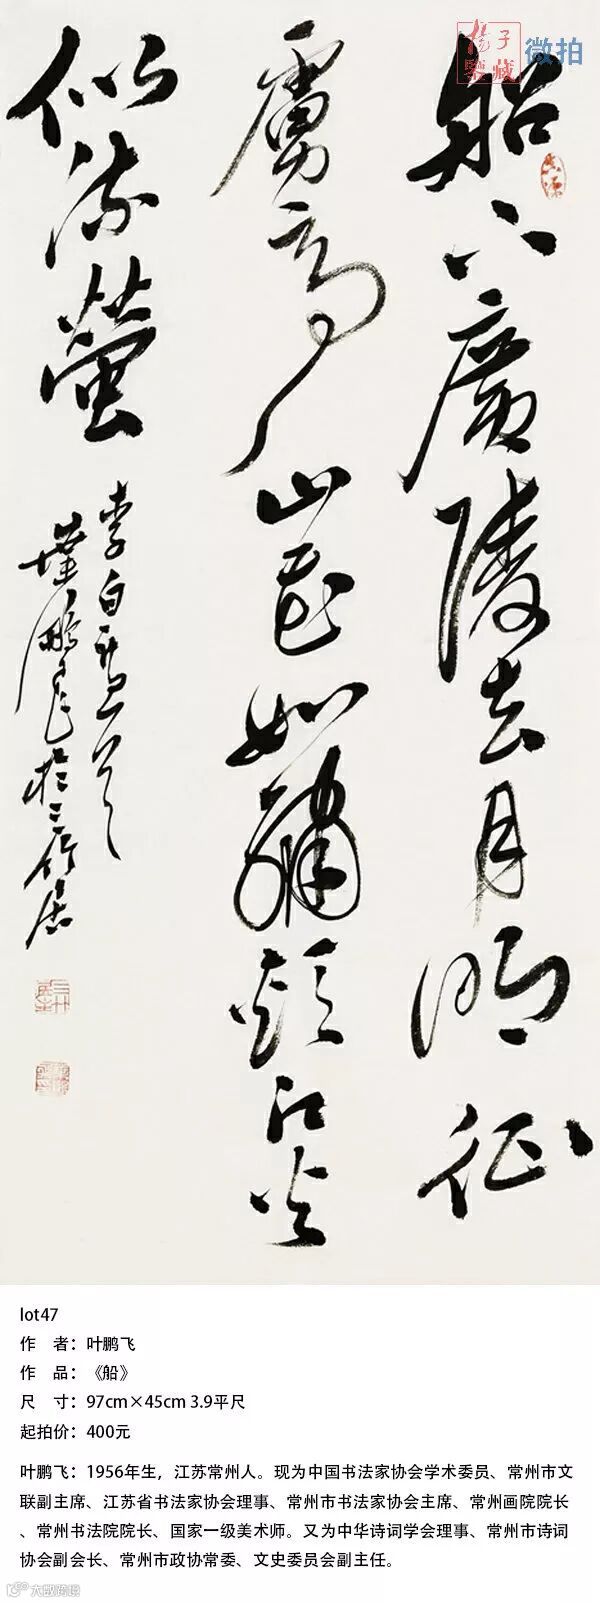 揚子
鑒藏
微拍
船下廣陵去月明征
虜亭山花如繡頰江火
似流螢
李白
葉鵬飛於三竹居
lot47
作 者：叶鹏飞
作 品：《船》
尺 寸：97cm×45cm 3.9平尺
起拍价：400元
叶鹏飞：1956年生，江苏常州人。现为中国书法家协会学术委员、常州市文
联副主席、江苏省书法家协会理事、常州市书法家协会主席、常州画院院长
、常州书法院院长、国家一级美术师。又为中华诗词学会理事、常州市诗词
协会副会长、常州市政协常委、文史委员会副主任。
大数跨境